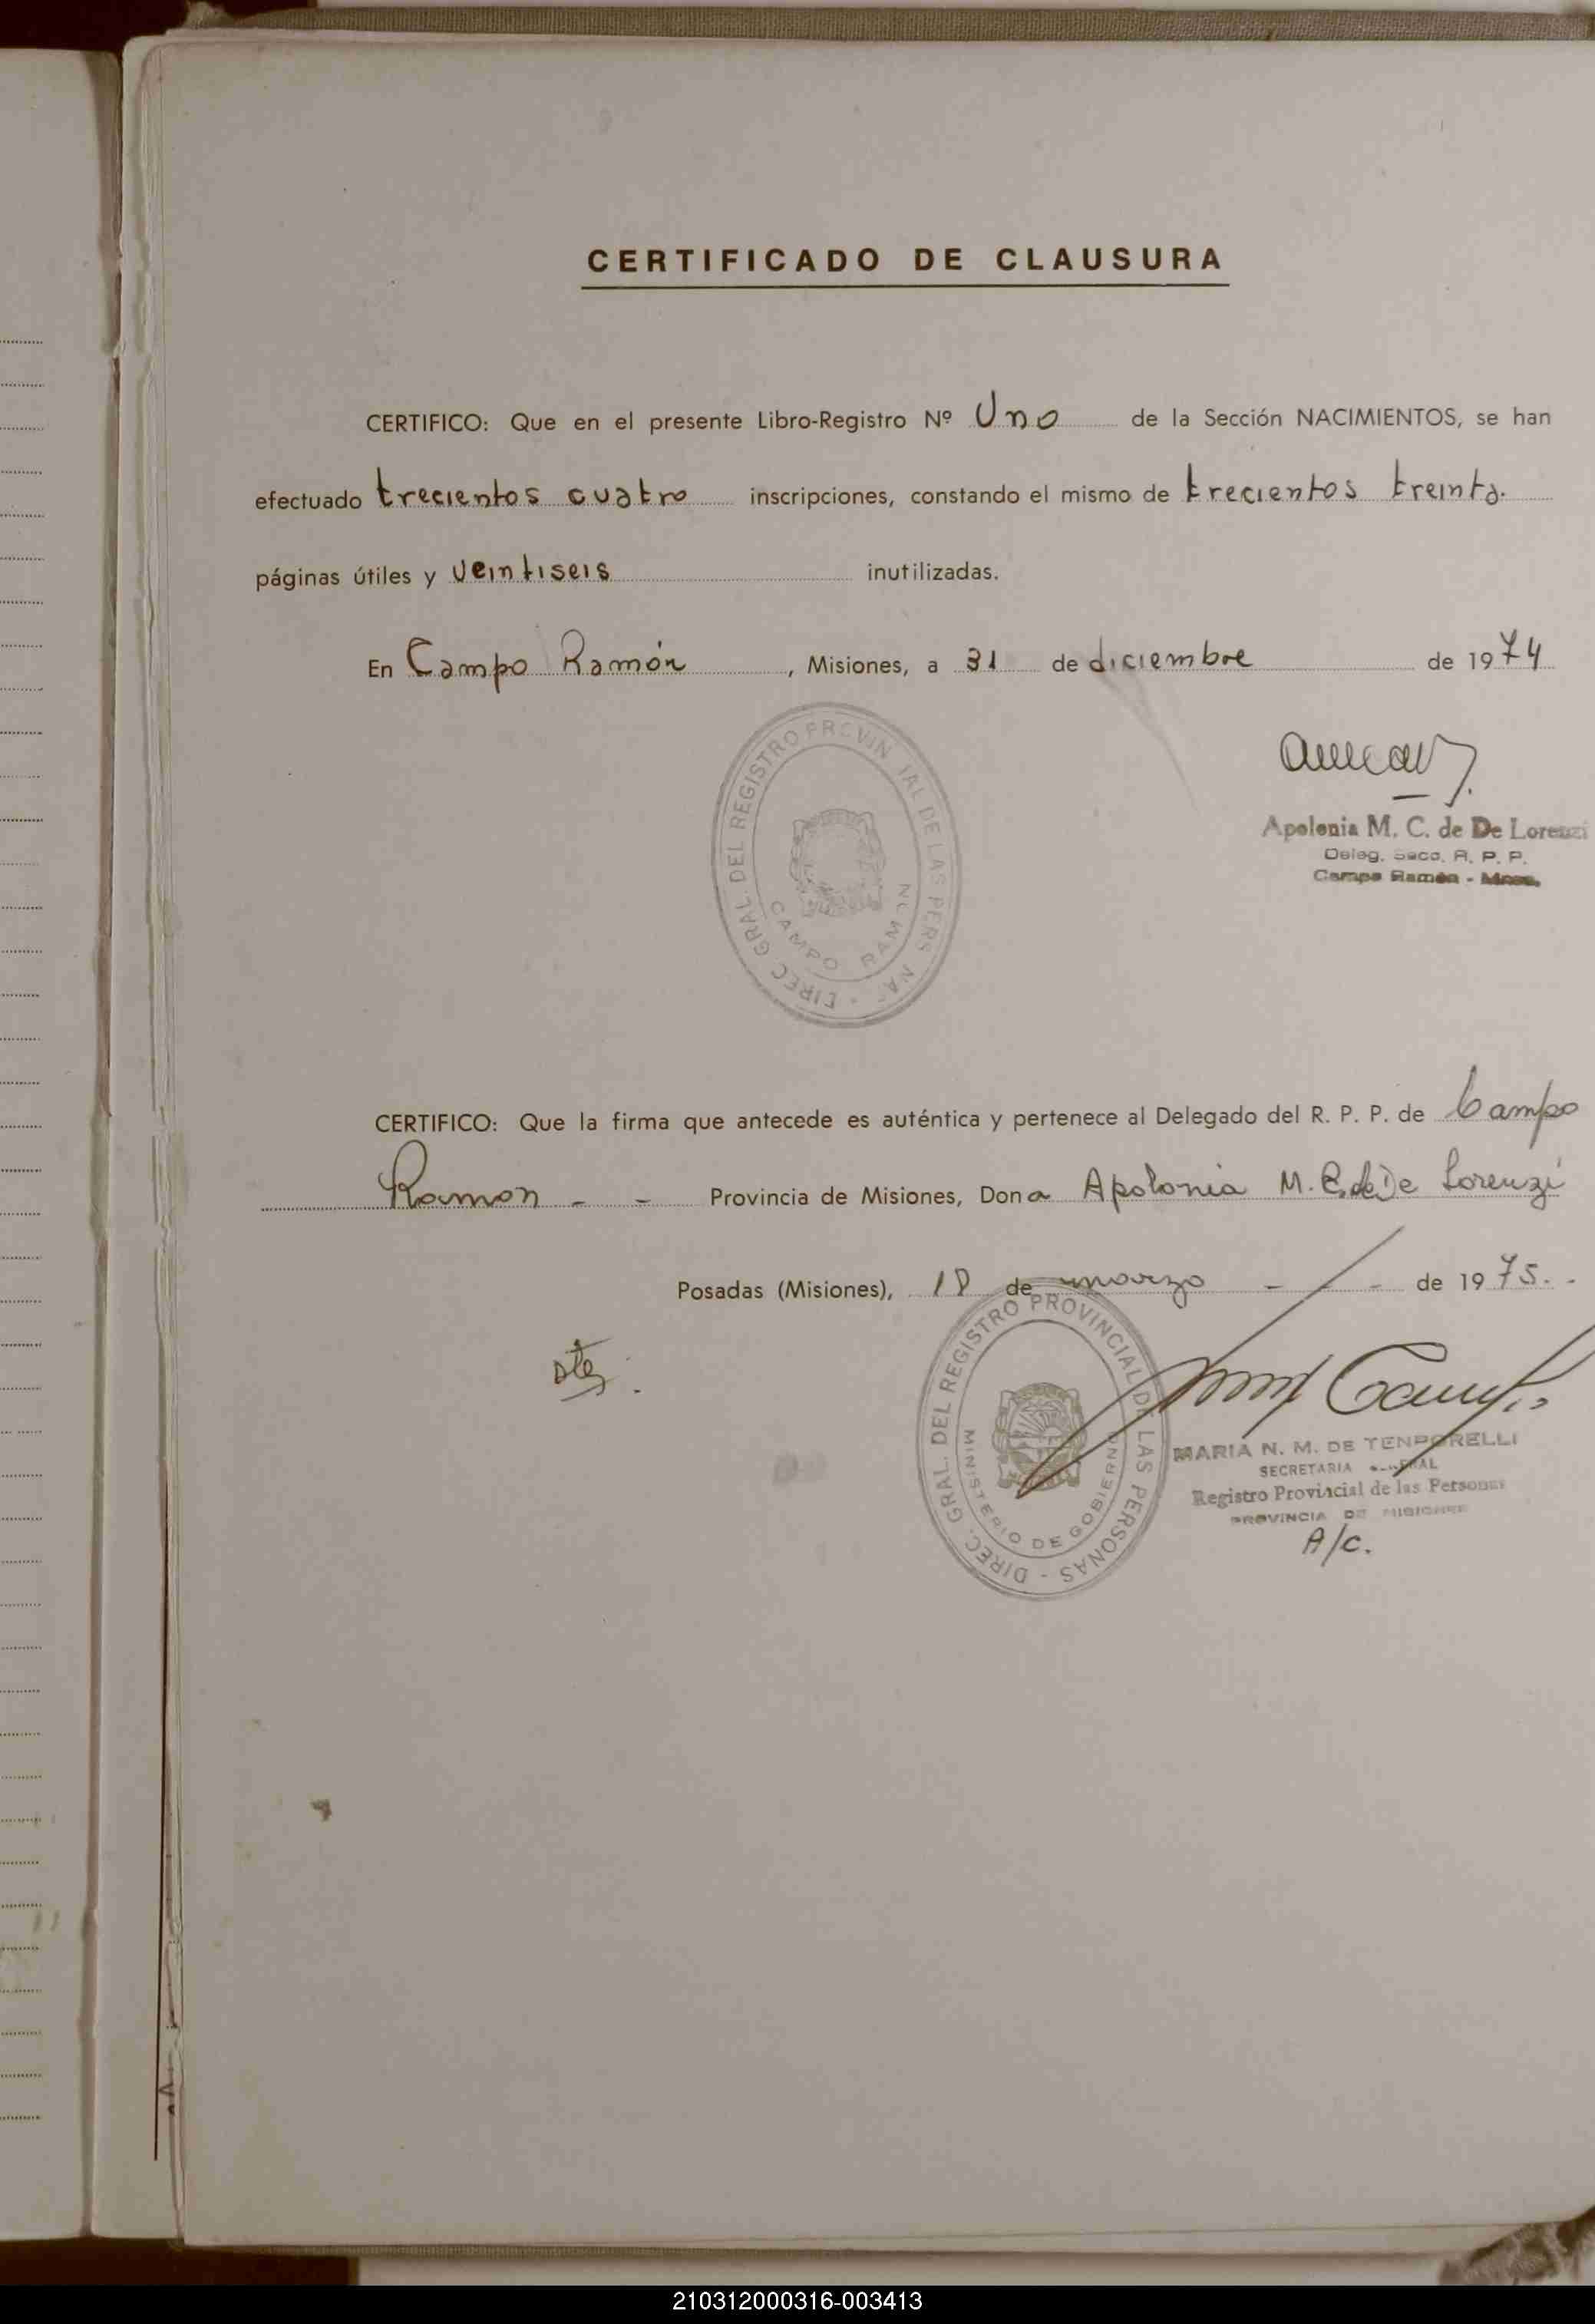 CERTIFICADO DE CLAUSURA
CERTIFICO: Que en el presente Libro-Registro Nº Uno de la Sección NACIMIENTOS, se han
efectuado trecientos cuatro inscripciones, constando el mismo de trecientos treinta.
páginas útiles y veintiseis inutilizadas.
En Campo Ramón, Misiones, a 31 de diciembre de 1974
DIREC. GRAL. DEL REGISTRO PROVIN IAL DE LAS PERS NAS
CAMPO RAM N
Apolonia M. C. de De Lorenzi
Deleg. Secc. R. P. P.
Campo Ramón - Mnes.
CERTIFICO: Que la firma que antecede es auténtica y pertenece al Delegado del R. P. P. de Campo
Ramon - - Provincia de Misiones, Dona Apolonia M. C. de De Lorenzi
Posadas (Misiones), 18 de marzo - - de 1975. -
DIREC. GRAL. DEL REGISTRO PROVINCIAL DE LAS PERSONAS -
MINISTERIO DE GOBIERNO
MARIA N. M. DE TENPORELLI
SECRETARIA
Registro Provincial de las Personas
PROVINCIA DE MISIONES
A/C.
210312000316-003413